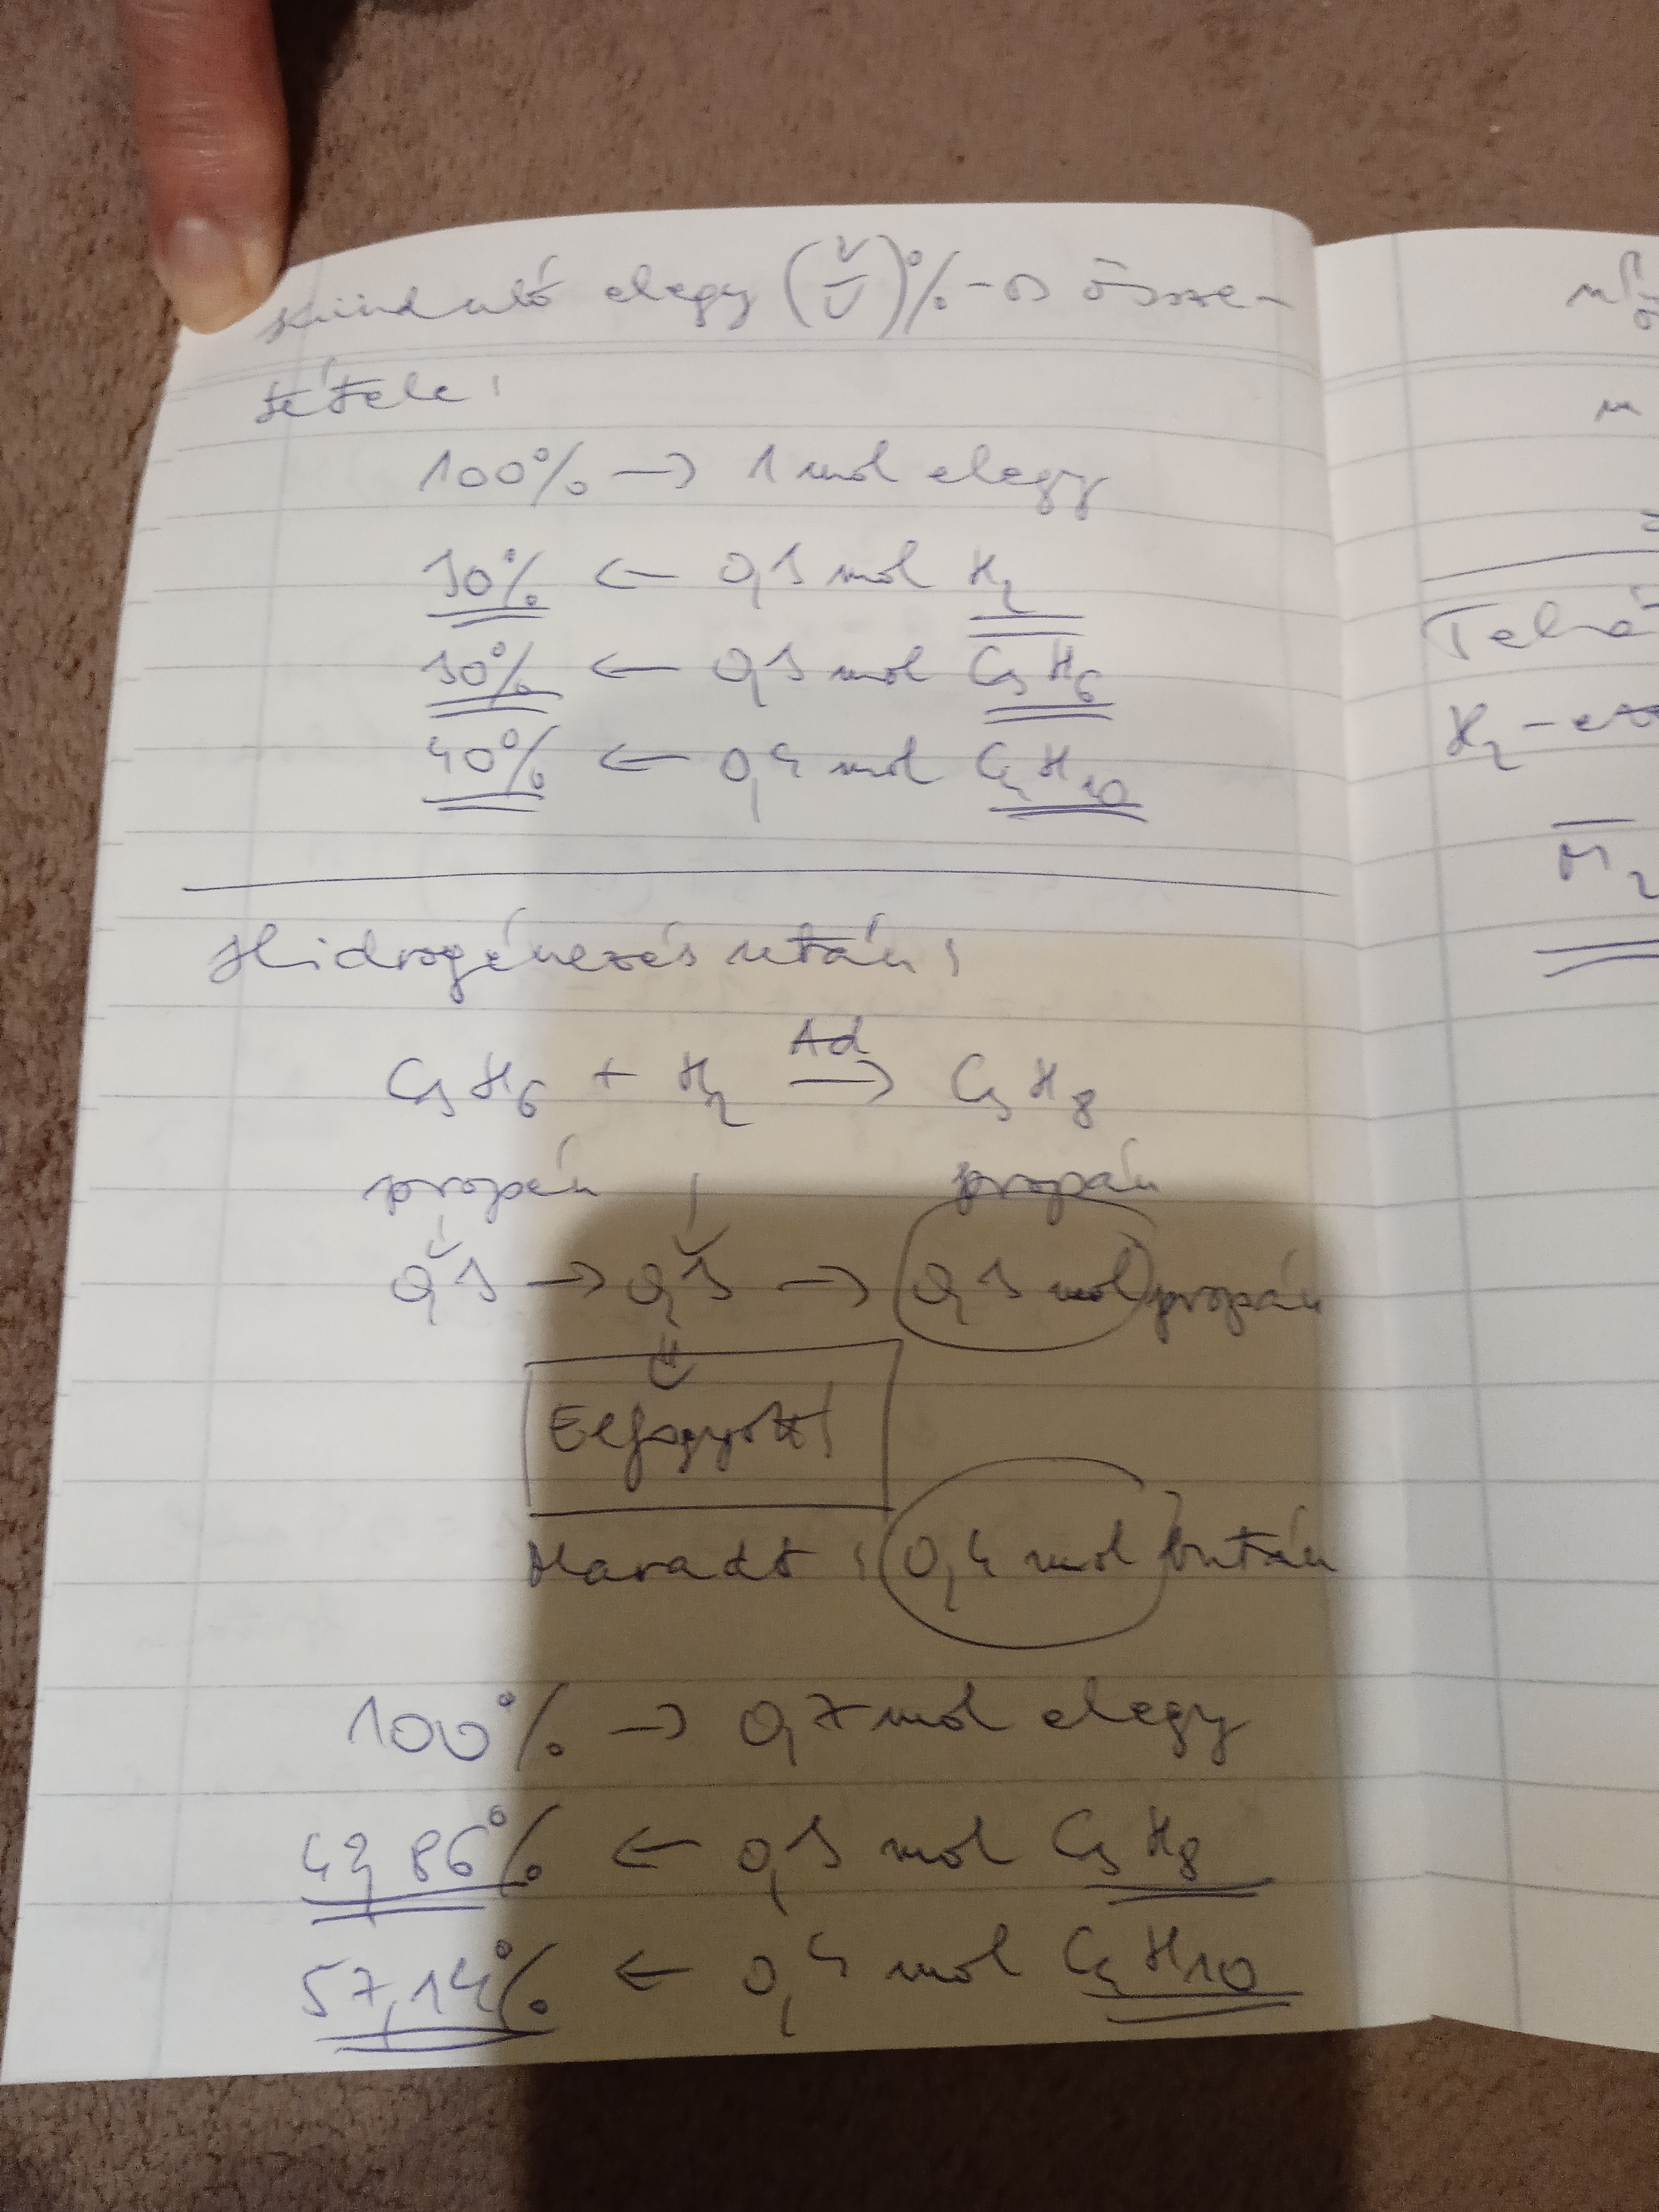 Kiinduló elegy (V/V)%-os össze-
tétele:
100% → 1 mol elegy
30% ← 0,3 mol H₂
30% ← 0,3 mol C₃H₆
40% ← 0,4 mol C₄H₁₀
Hidrogénezés után:
C₃H₆ + H₂ —Ad→ C₃H₈
propén propán
0,3 → 0,3 → 0,3 mol propán
Elfogyott!
Maradt: 0,4 mol bután
100% → 0,7 mol elegy
42,86% ← 0,3 mol C₃H₈
57,14% ← 0,4 mol C₄H₁₀
m
Tehá
H₂-
M₂